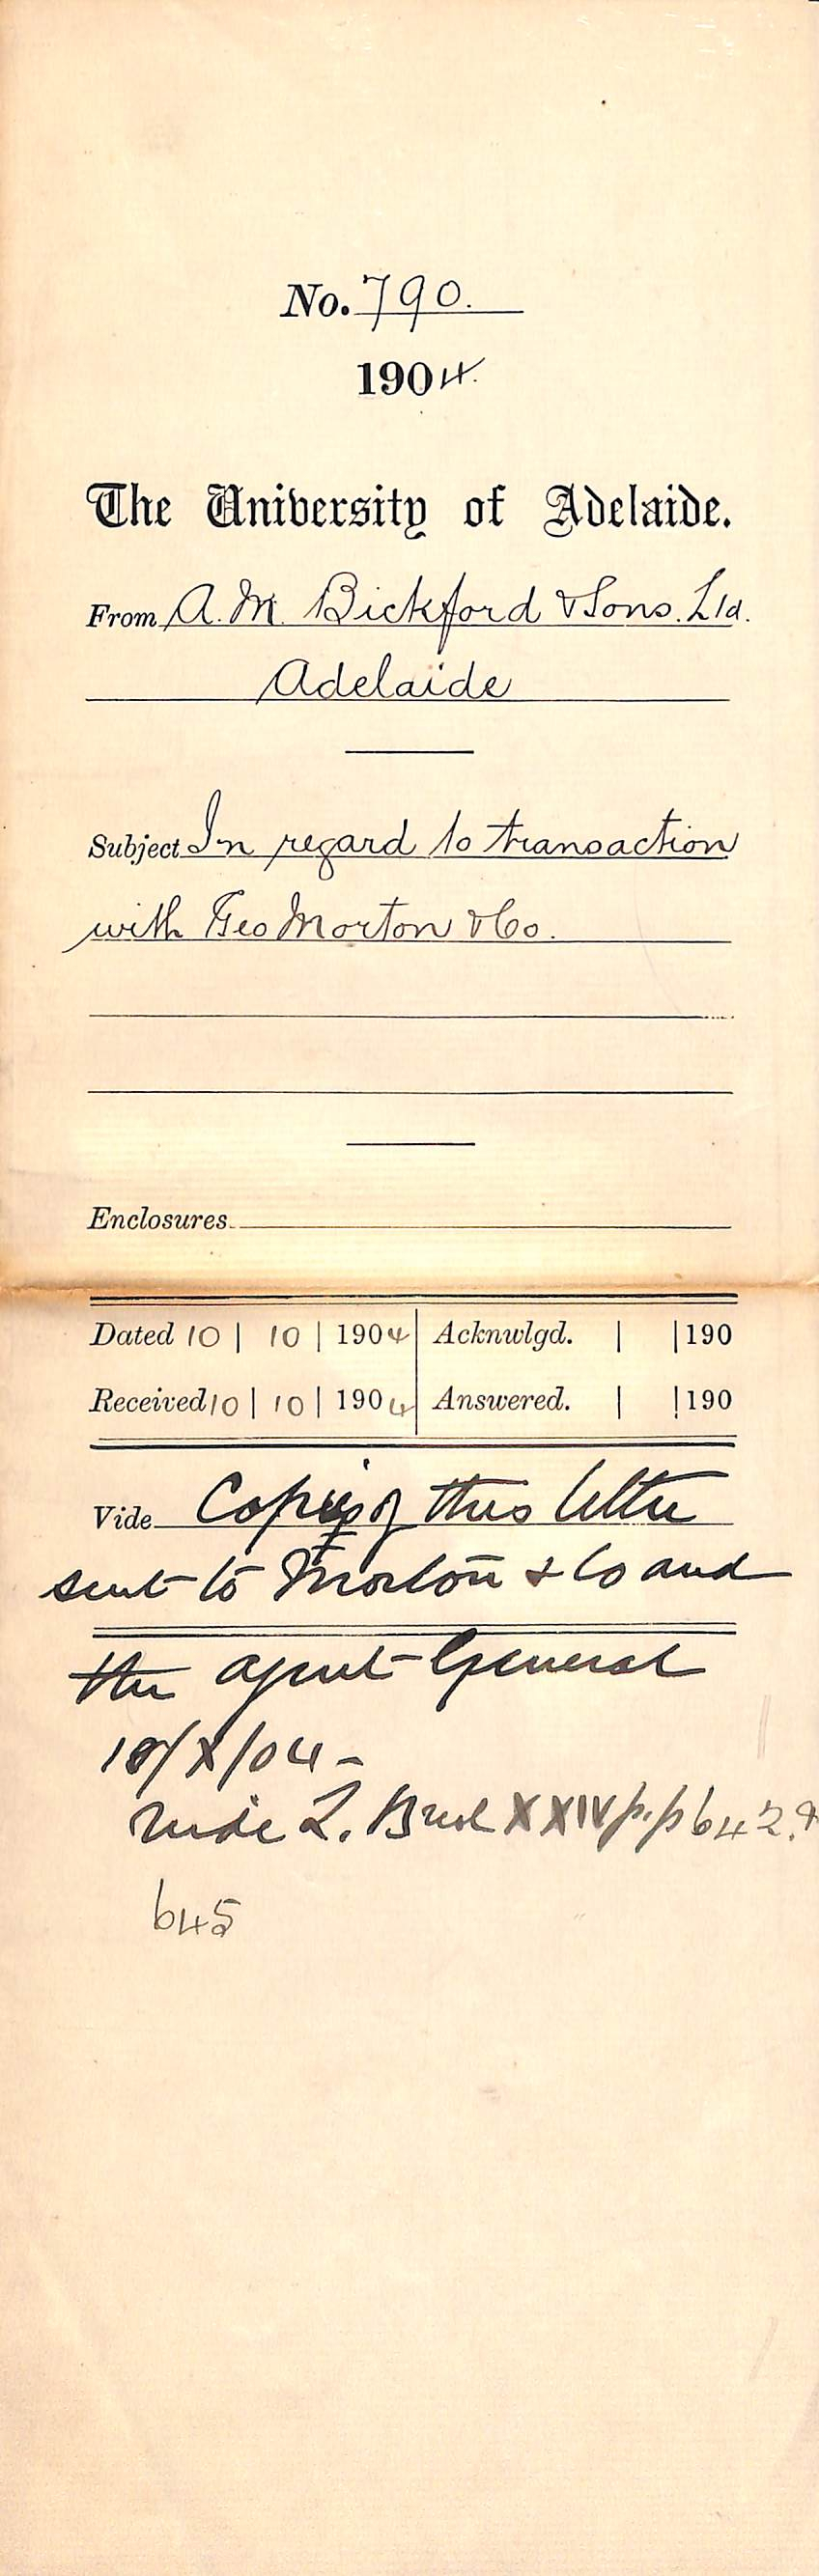 No. 790.
1904.
The University of Adelaide.
From A. M. Bickford & Sons. Ltd.
Adelaide
Subject In regard to transaction
with Geo Morton & Co.
Enclosures
Dated 10 | 10 | 1904 Acknwlgd. | | 190
Received 10 | 10 | 1904 Answered. | | 190
Vide Copies of this letter
sent to Morton & Co and
the Agent-General
/X/04 -
vide L. Book XXIV p.p 642. &
645